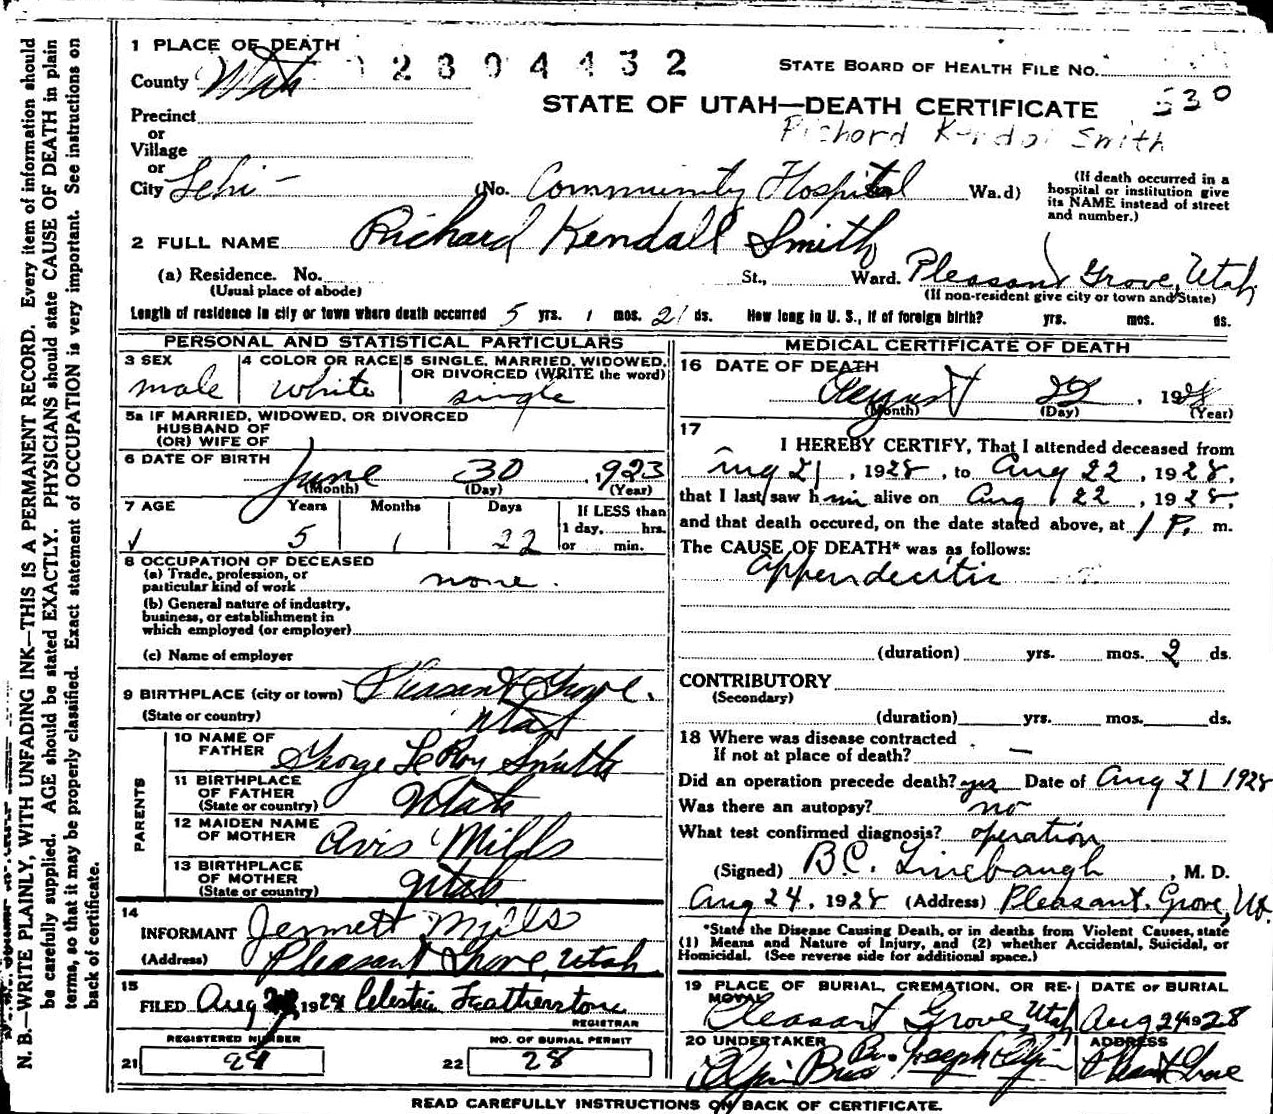 N. B.—WRITE PLAINLY, WITH UNFADING INK—THIS IS A PERMANENT RECORD. Every item of information should
be carefully supplied. AGE should be stated EXACTLY. PHYSICIANS should state CAUSE OF DEATH in plain
terms, so that it may be properly classified. Exact statement of OCCUPATION is very important. See instructions on
back of certificate.
1 PLACE OF DEATH
County Utah 2804432 STATE BOARD OF HEALTH FILE NO.
STATE OF UTAH—DEATH CERTIFICATE 530
Precinct
Richard Kendal Smith
or
Village
or
City Lehi - (No. Community Hospital Wa.d)
(If death occurred in a
hospital or institution give
its NAME instead of street
and number.)
2 FULL NAME Richard Kendall Smith
(a) Residence. No. St., Ward. Pleasant Grove, Utah
(Usual place of abode) (If non-resident give city or town and State)
Length of residence in city or town where death occurred 5 yrs. 1 mos. 21 ds. How long in U. S., if of foreign birth? yrs. mos. ds.
PERSONAL AND STATISTICAL PARTICULARS
3 SEX
male
4 COLOR OR RACE
white
5 SINGLE, MARRIED, WIDOWED,
OR DIVORCED (WRITE the word)
single
5a IF MARRIED, WIDOWED, OR DIVORCED
HUSBAND OF
(OR) WIFE OF
6 DATE OF BIRTH
June 30 1923
(Month) (Day) (Year)
7 AGE Years Months Days If LESS than
1 day, hrs.
or min.
5 1 22
8 OCCUPATION OF DECEASED
(a) Trade, profession, or
particular kind of work none.
(b) General nature of industry,
business, or establishment in
which employed (or employer)
(c) Name of employer
9 BIRTHPLACE (city or town) Pleasant Grove.
(State or country) Utah
PARENTS
10 NAME OF
FATHER George LeRoy Smith
11 BIRTHPLACE
OF FATHER
(State or country) Utah
12 MAIDEN NAME
OF MOTHER Avis Mills
13 BIRTHPLACE
OF MOTHER
(State or country) Utah
14
INFORMANT Jennett Mills
(Address) Pleasant Grove, Utah
15
FILED Aug 1928 Celestia Featherstone
REGISTRAR
REGISTERED NUMBER
21 29
NO. OF BURIAL PERMIT
22 28
MEDICAL CERTIFICATE OF DEATH
16 DATE OF DEATH
August 22, 1928
(Month) (Day) (Year)
17
I HEREBY CERTIFY, That I attended deceased from
Aug 21, 1928, to Aug 22, 1928,
that I last saw him alive on Aug 22, 1928,
and that death occured, on the date stated above, at 1 P. m.
The CAUSE OF DEATH* was as follows:
Appendecitis
(duration) yrs. mos. 2 ds.
CONTRIBUTORY
(Secondary)
(duration) yrs. mos. ds.
18 Where was disease contracted
If not at place of death? —
Did an operation precede death? yes Date of Aug 21 1928
Was there an autopsy? no
What test confirmed diagnosis? operation
(Signed) B.C. Linebaugh, M. D.
Aug 24, 1928 (Address) Pleasant Grove, Ut.
*State the Disease Causing Death, or in deaths from Violent Causes, state
(1) Means and Nature of Injury, and (2) whether Accidental, Suicidal, or
Homicidal. (See reverse side for additional space.)
19 PLACE OF BURIAL, CREMATION, OR RE-
MOVAL
Pleasant Grove, Utah
DATE OF BURIAL
Aug 24 1928
20 UNDERTAKER
Olpin Bros By Joseph Olpin
ADDRESS
Pleasant Grove
READ CAREFULLY INSTRUCTIONS ON BACK OF CERTIFICATE.